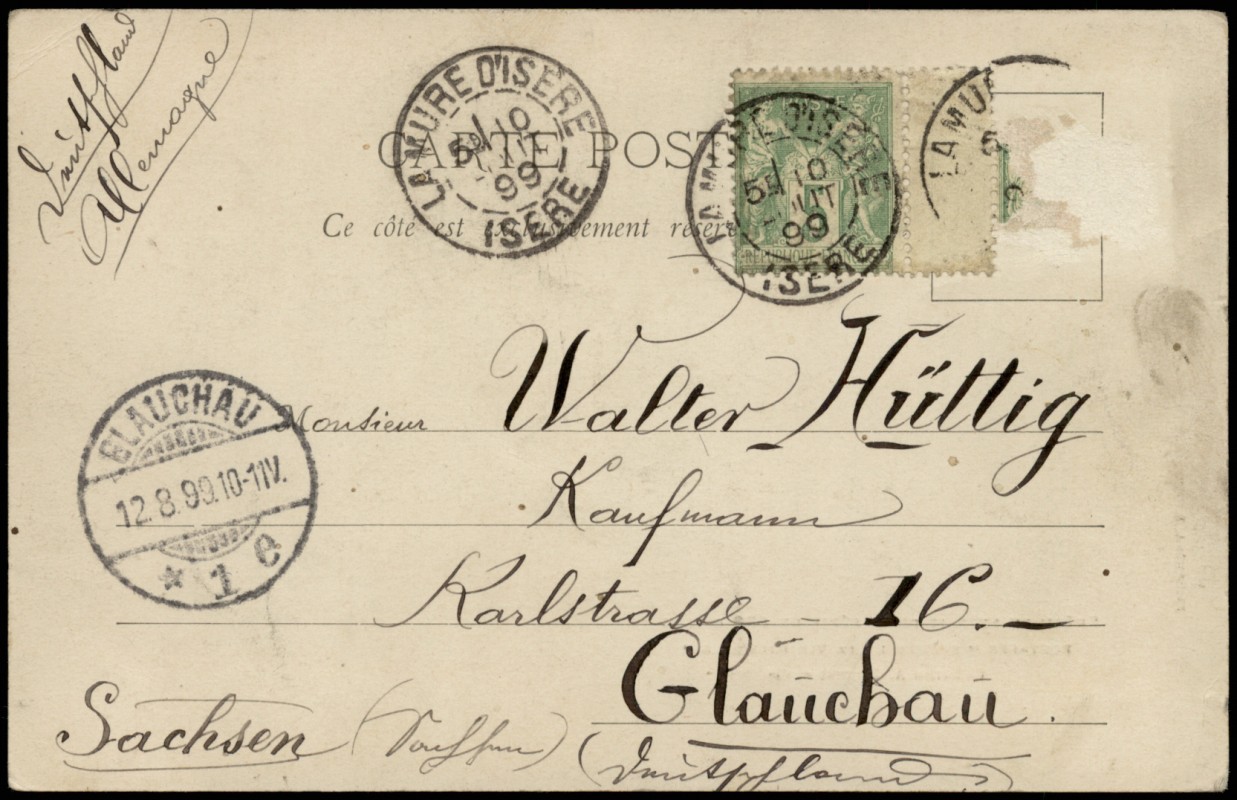 Deutschland
Allemagne
LA MURE D'ISÈRE
5E 10
99
ISÈRE
CARTE POST
Ce côté est exclusivement réservé
LA MURE D'ISÈRE
5E 10
AOUT
99
ISÈRE
5
RÉPUBLIQUE
LA MU
GLAUCHAU
12.8.99.10-11V.
* 1 e
Monsieur Walter Hüttig
Kaufmann
Karlstrasse - 16.
Glauchau.
Sachsen (Sachsen)
(Deutschland)